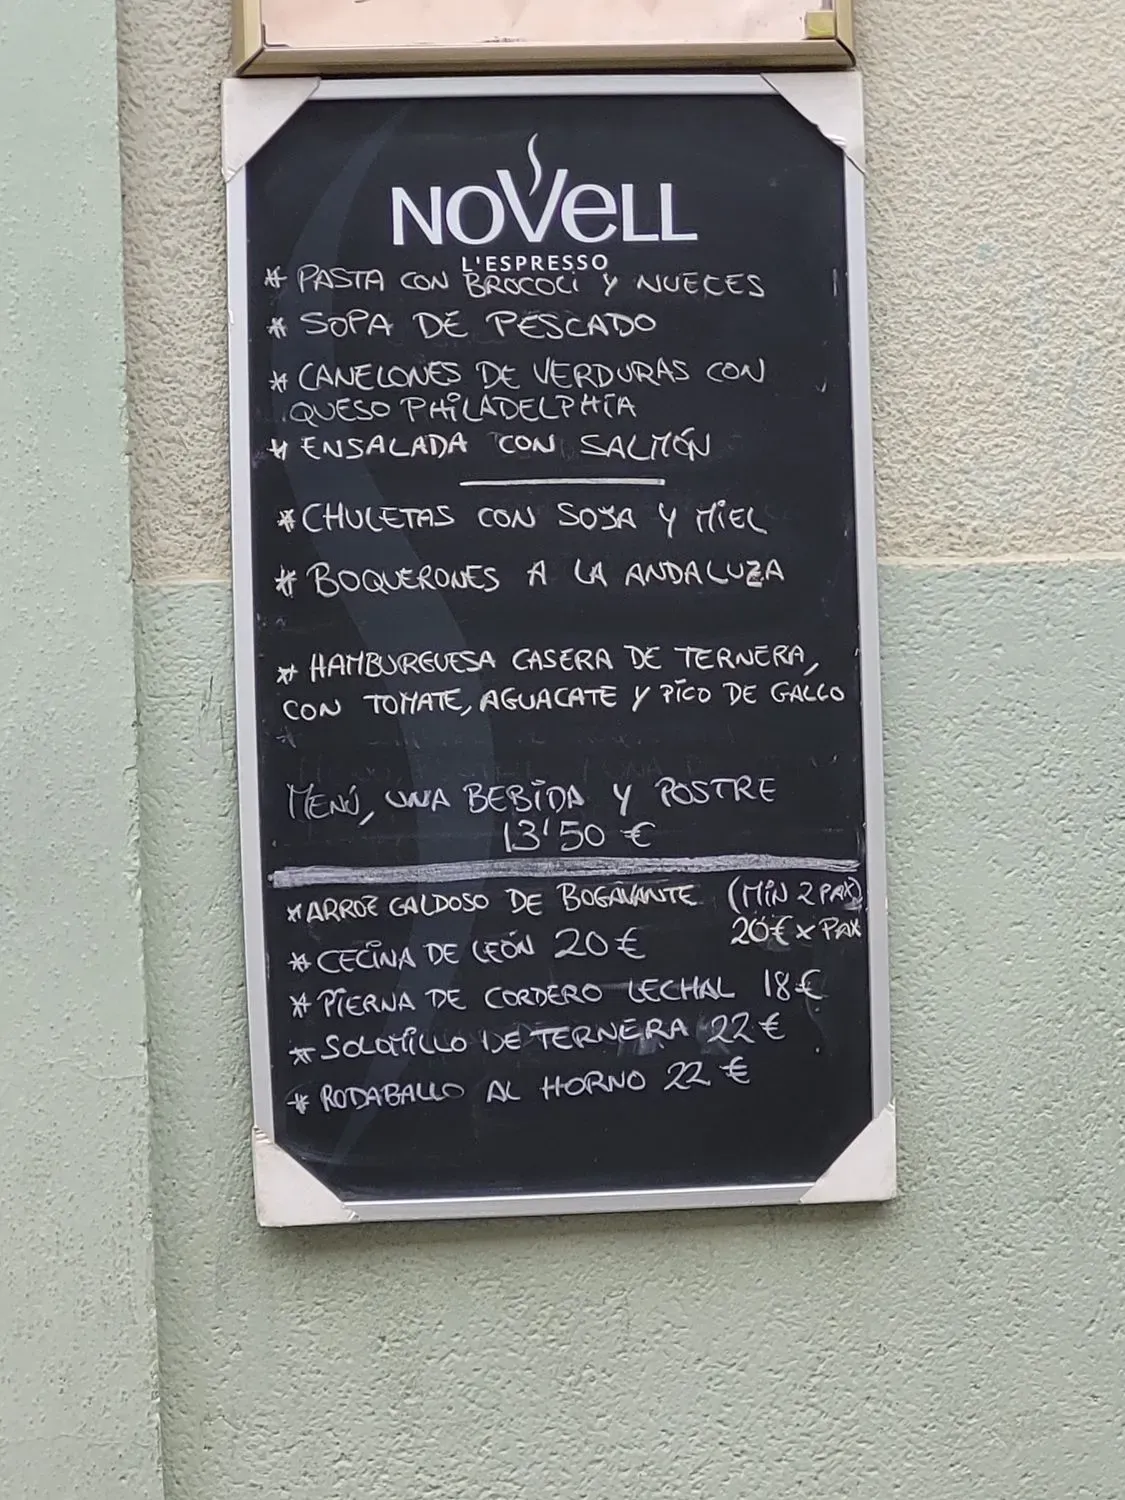 NOVELL
L'ESPRESSO
* PASTA CON BROCOLI Y NUECES
* SOPA DE PESCADO
* CANELONES DE VERDURAS CON
QUESO PHILADELPHIA
* ENSALADA CON SALMÓN
* CHULETAS CON SOJA Y MIEL
* BOQUERONES A LA ANDALUZA
* HAMBURGUESA CASERA DE TERNERA,
CON TOMATE, AGUACATE Y PICO DE GALLO
MENÚ, UNA BEBIDA Y POSTRE
13'50 €
* ARROZ CALDOSO DE BOGAVANTE (MIN 2 PAX)
20€ x PAX
* CECINA DE LEÓN 20€
* PIERNA DE CORDERO LECHAL 18€
* SOLOMILLO DE TERNERA 22€
* RODABALLO AL HORNO 22 €